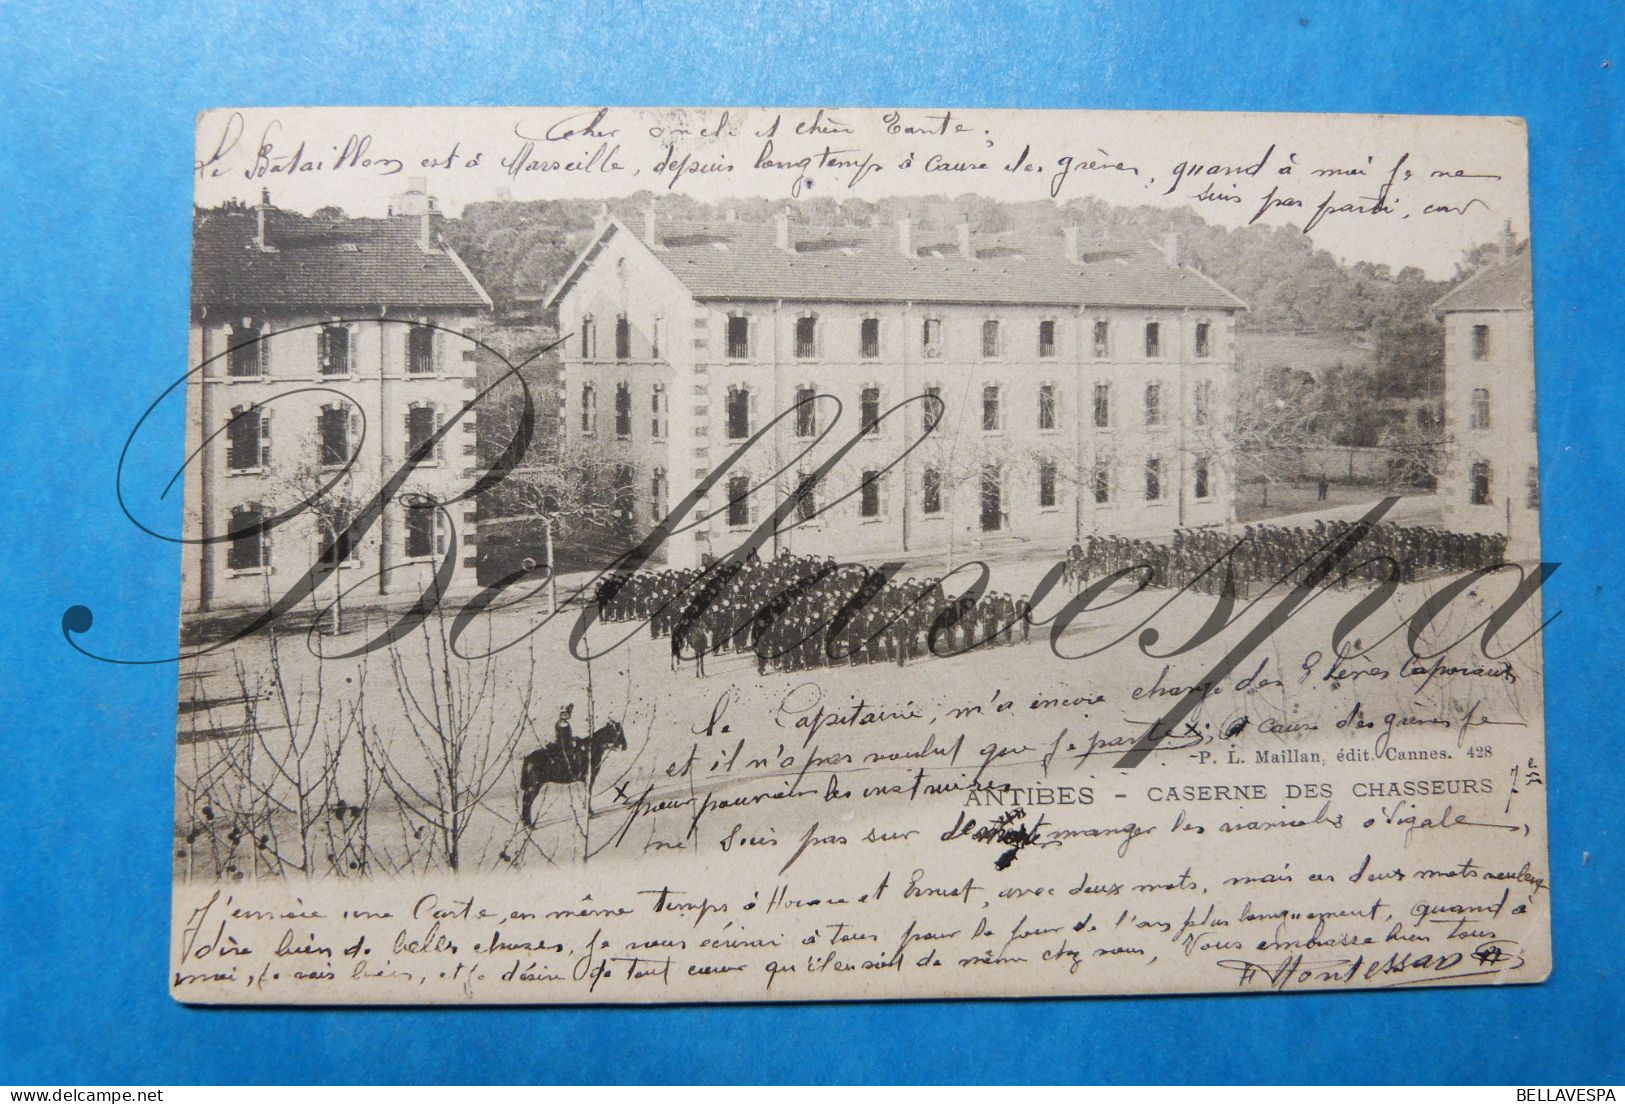 Cher oncle et chère Tante.
Le Bataillon est à Marseille, depuis longtemps à cause des grèves, quand à moi je ne
suis pas parti, car
le Capitaine, m'a encore chargé des Elèves Caporaux
et il n'a pas voulut que je parte x; à cause des grèves je
-P. L. Maillan, édit. Cannes. 428
x pour pouvoir les instruires
ANTIBES - CASERNE DES CHASSEURS 7e Cie
ne suis pas sur de manger les à Sigale,
J'envoie une Carte, en même temps à Horace et Ernest, avec deux mots, mais ces deux mots veulent
dire bien de belles choses, je vous écrirai à tous pour le jour de l'an plus longuement, quand à
moi, je vais bien, et je désire de tout cœur qu'il en soit de même chez vous, Vous embrasse bien tous
Montessao
Bellavespa
BELLAVESPA